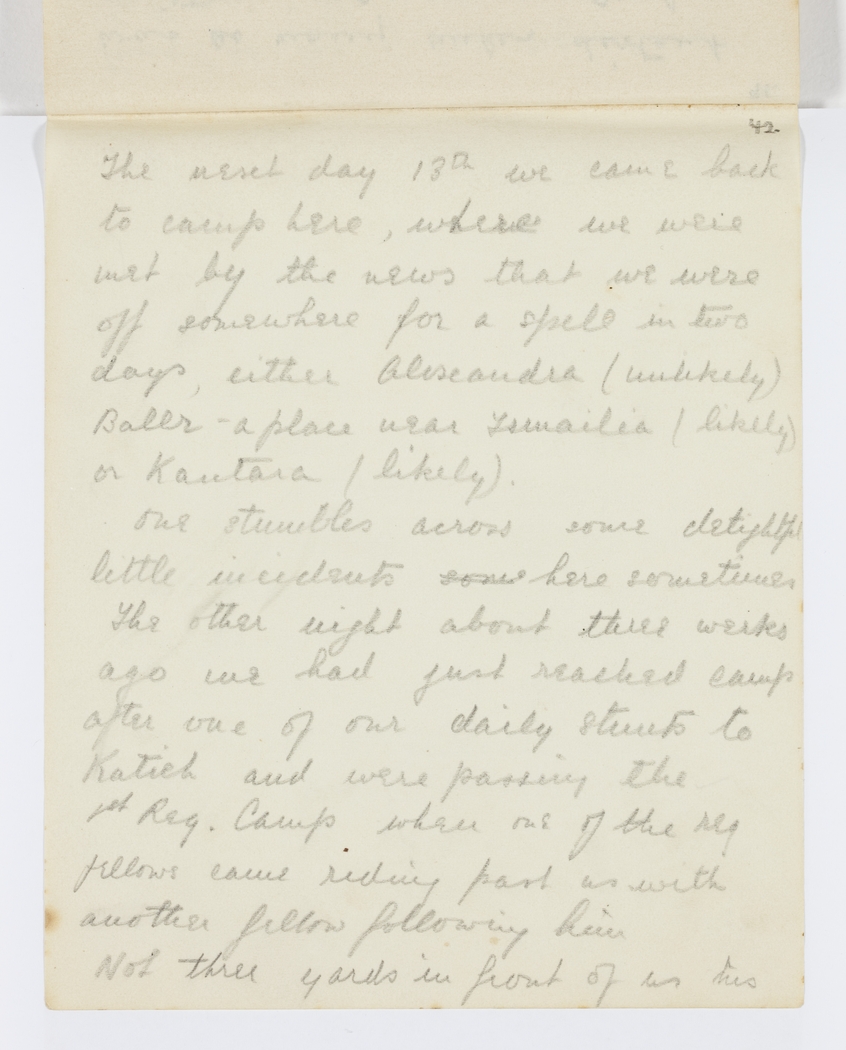 42.
The next day 13th we came back
to camp here, where we were
met by the news that we were
off somewhere for a spell in two
days, either Alexandra (unlikely)
Ballr - a place near Ismailia (likely)
or Kantara (likely).
One stumbles across some delightful
little incidents some here sometimes
The other night about three weeks
ago we had just reached camp
after one of our daily stunts to
Katieh and were passing the
1st Reg. Camp when one of the reg
fellows came riding past us with
another fellow following him
Not three yards in front of us his